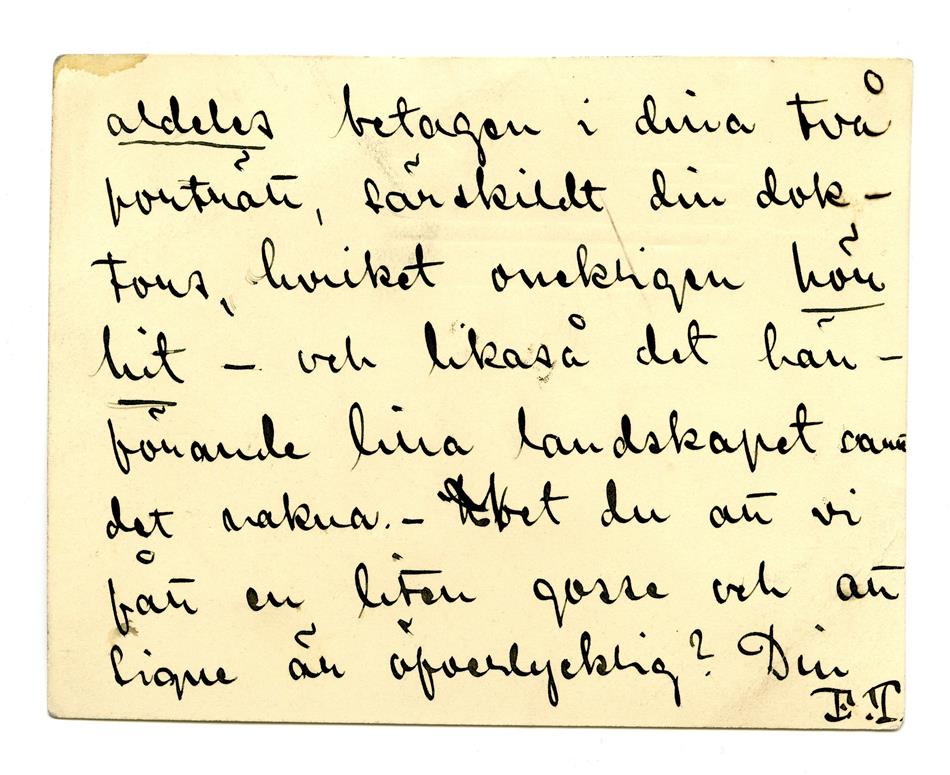 aldeles betagen i dina två
porträtt, särskildt din dok-
tors, hvilket onekligen hör
hit – och likaså det hän-
förande lilla landskapet samt
det nakna. – Vet du att vi
fått en liten gosse och att
Signe är öfverlycklig? Din
F.T.